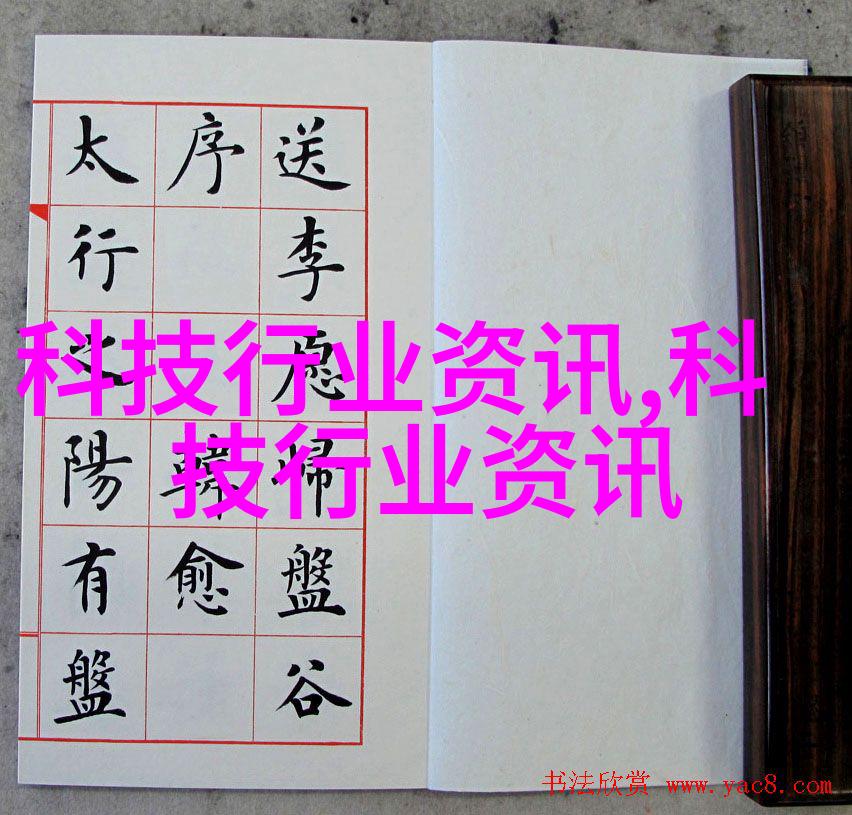 送李愿歸盤谷
序 韓愈
太行之陽有盤
科技行业资讯,科
技行业资讯
书法欣赏 www.yac8.com